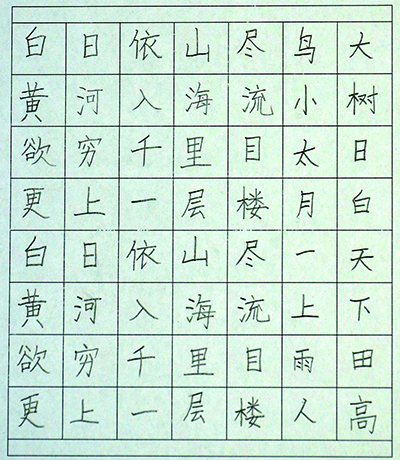 白日依山尽鸟大
黄河入海流小树
欲穷千里目太日
更上一层楼月白
白日依山尽一天
黄河入海流上下
欲穷千里目雨田
更上一层楼人高